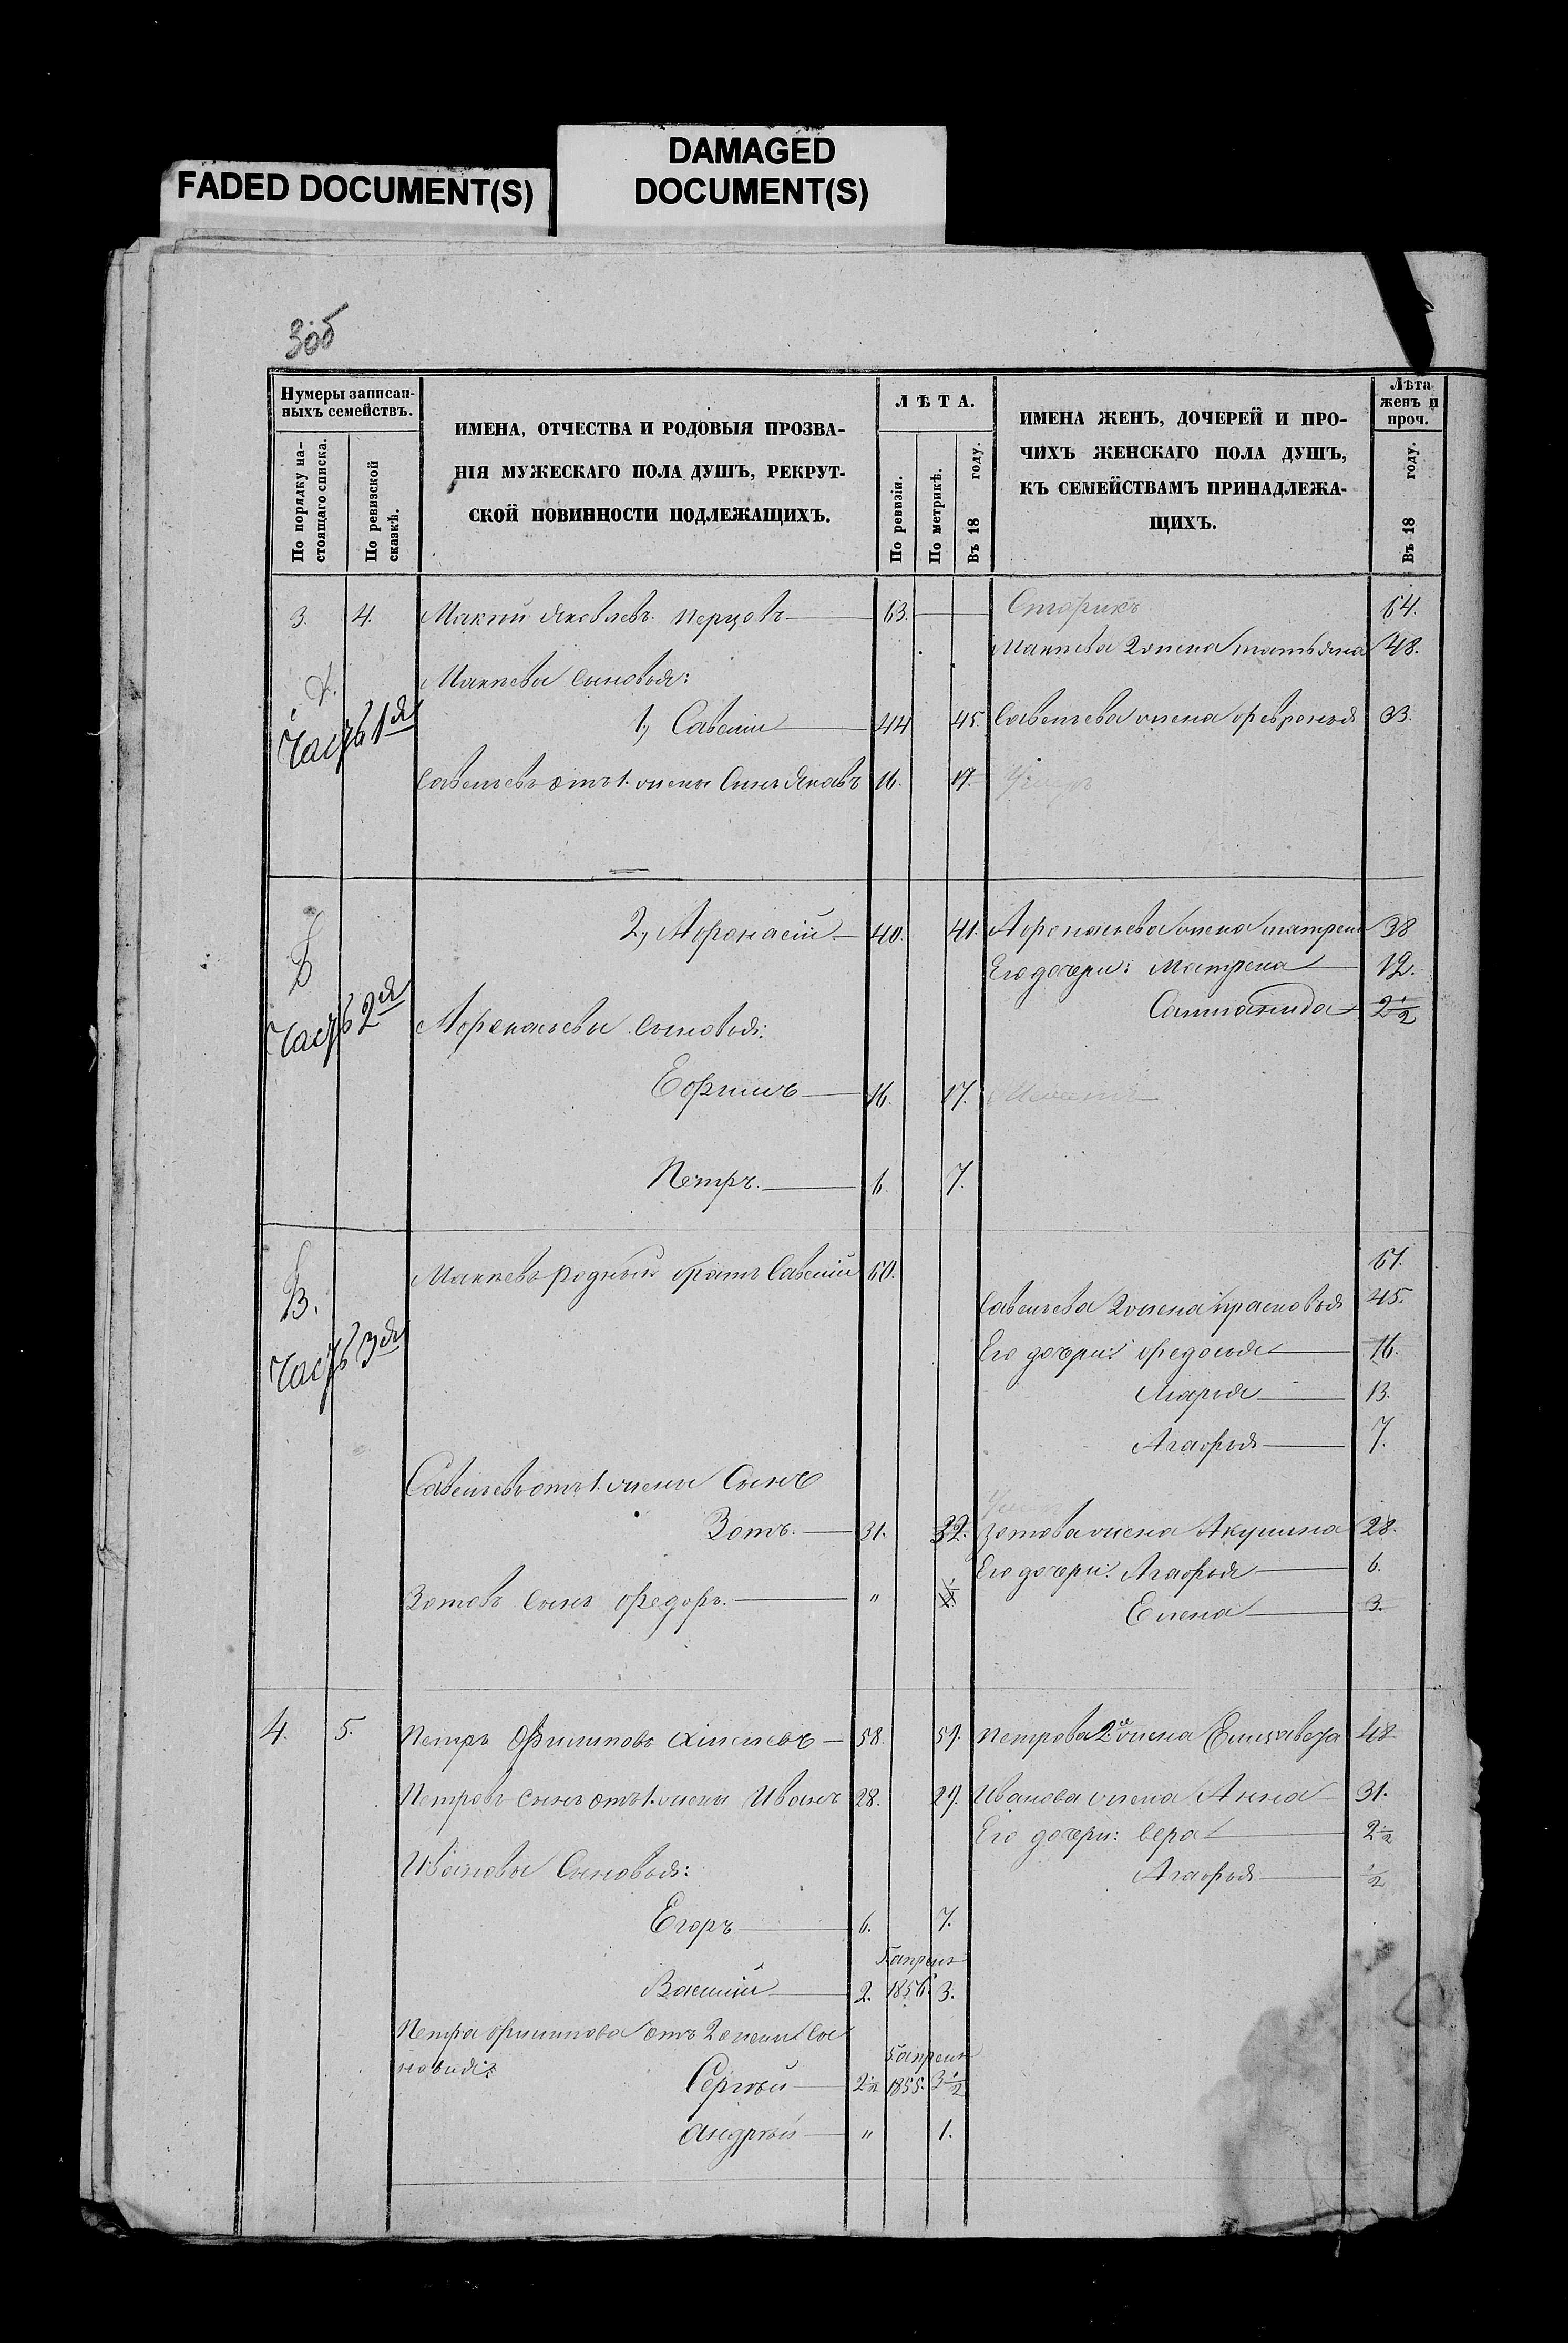 FADED DOCUMENT(S)
DAMAGED
DOCUMENT(S)
Нумеры записан-
ныхъ семействъ.
По порядку на-
стоящаго списка.
По ревизской
сказкѣ.
ИМЕНА, ОТЧЕСТВА И РОДОВЫЯ ПРОЗВА-
НІЯ МУЖЕСКАГО ПОЛА ДУШЪ, РЕКРУТ-
СКОЙ ПОВИННОСТИ ПОДЛЕЖАЩИХЪ.
ЛѢТА.
По ревизіи.
По метрикѣ.
Въ 18 году.
ИМЕНА ЖЕНЪ, ДОЧЕРЕЙ И ПРО-
ЧИХЪ ЖЕНСКАГО ПОЛА ДУШЪ,
КЪ СЕМЕЙСТВАМЪ ПРИНАДЛЕЖА-
ЩИХЪ.
Лѣта
женъ и
проч.
Въ 18 году.
3. 4. Яковлевъ Перцовъ 63. Старикъ 64.
2 жена татьяна 48.
сыновья:
Часть 1я
1, Савелiй 44 45. Савельева жена февронья 33.
Савельевъ отъ 1. жены Сынъ Яковъ 16. 17. Умеръ
2, Афонасiй 40. 41. Афонасьева жена матрена 38
Его дочери: Матрена 12.
2 1/2
Часть 2я
Афонасьевы сыновья:
Ефимъ 16. 17.
Петръ. 6. 7.
В.
родный братъ Савелiй 60. 61.
Савельева 2 жена прасковья 45.
Часть 3я
Его дочери: федосья 16.
Марья 13.
Агафья 7.
Савельевъ отъ 1. жены Сынъ
Зотъ. 31. 32. Зотова жена Акулина 28.
Его дочери: Агафья 6.
Зотовъ сынъ федоръ. " 1/2 Елена 3.
4. 5. Петръ Филиповъ 58. 59. Петрова 2я жена Елизавета 48
Петровъ сынъ отъ 1. жены Иванъ 28. 29. Иванова жена Анна 31.
Его дочери: вера 2 1/2
Ивановы Сыновья: Агафья 1/2
Егоръ 6. 7.
апреля
Василiй 2. 1856. 3.
Петра филипова отъ 2 жены Сы-
новья:
апреля
Сергѣй 2 1/2 1855. 3 1/2
Андрѣй " 1.